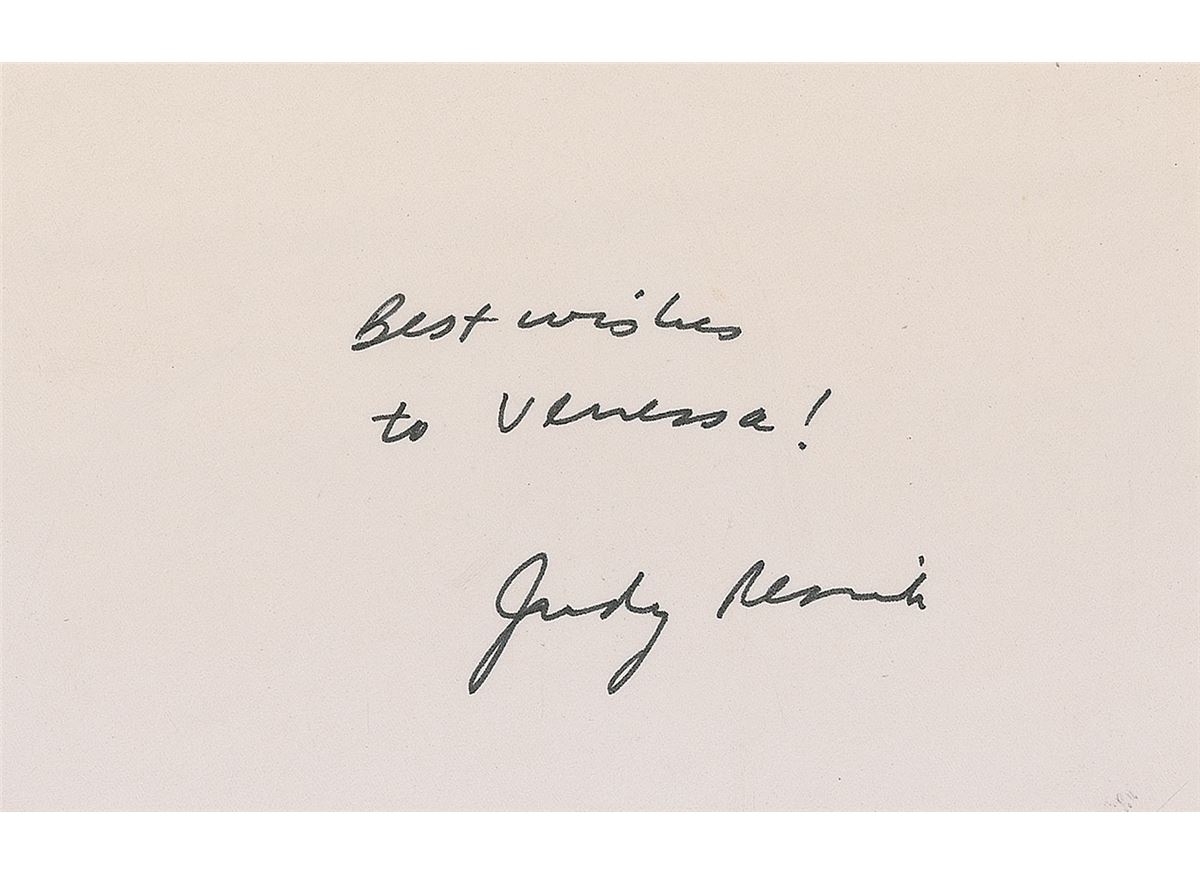 Best wishes
to Vanessa!
Judy Resnik